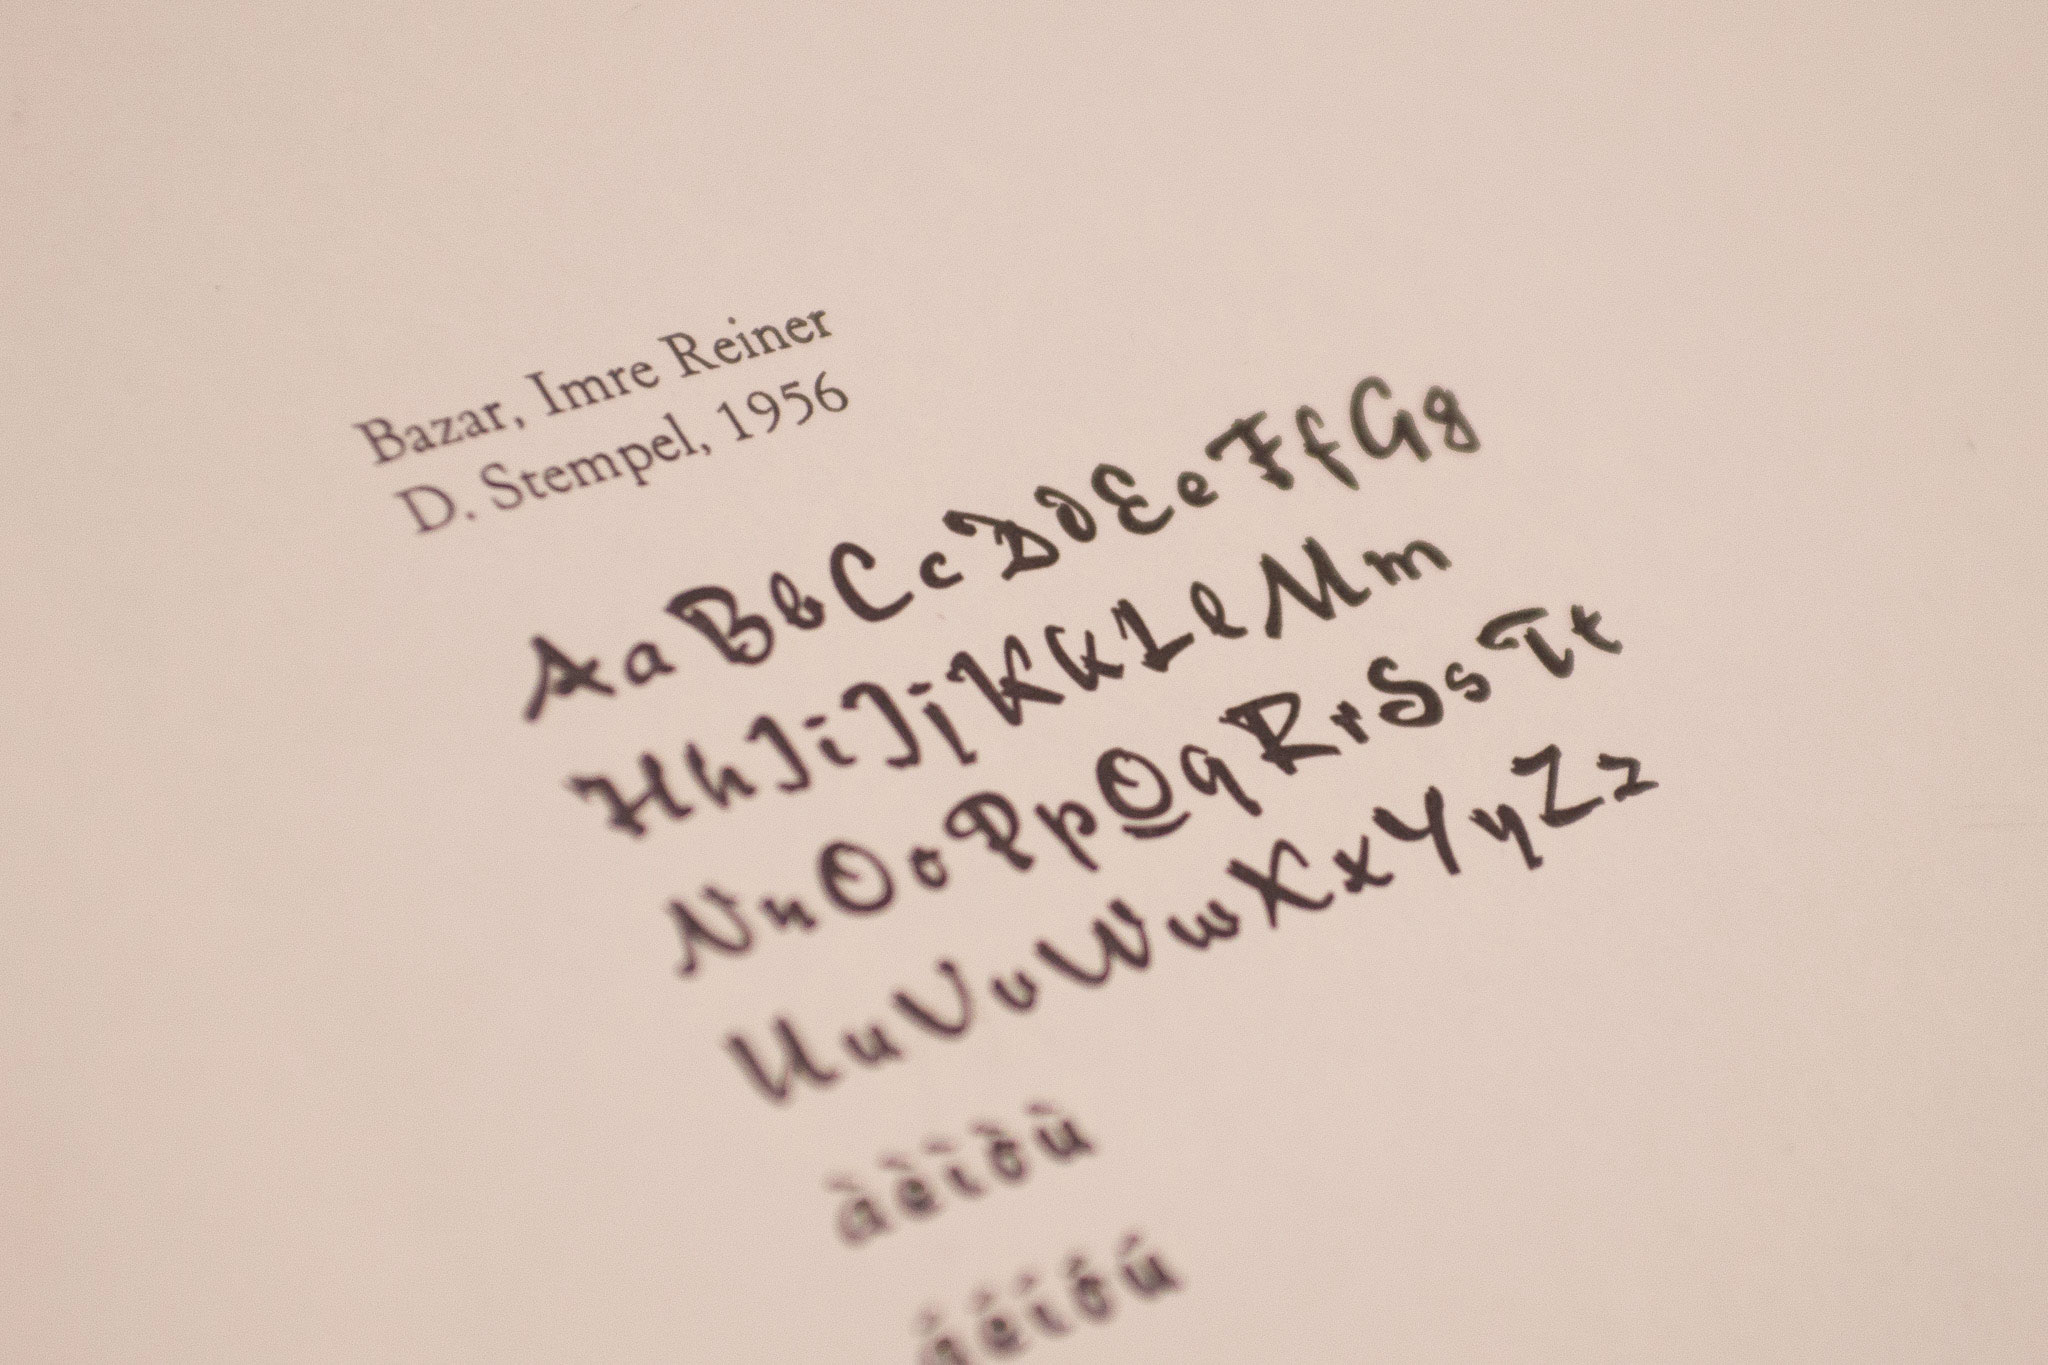 Bazar, Imre Reiner
D. Stempel, 1956
AaBbCcDdEeFfGg
HhIiJjKkLlMm
NnOoPpQqRrSsTt
UuVvWwXxYyZz
àèìòù
áéíóú